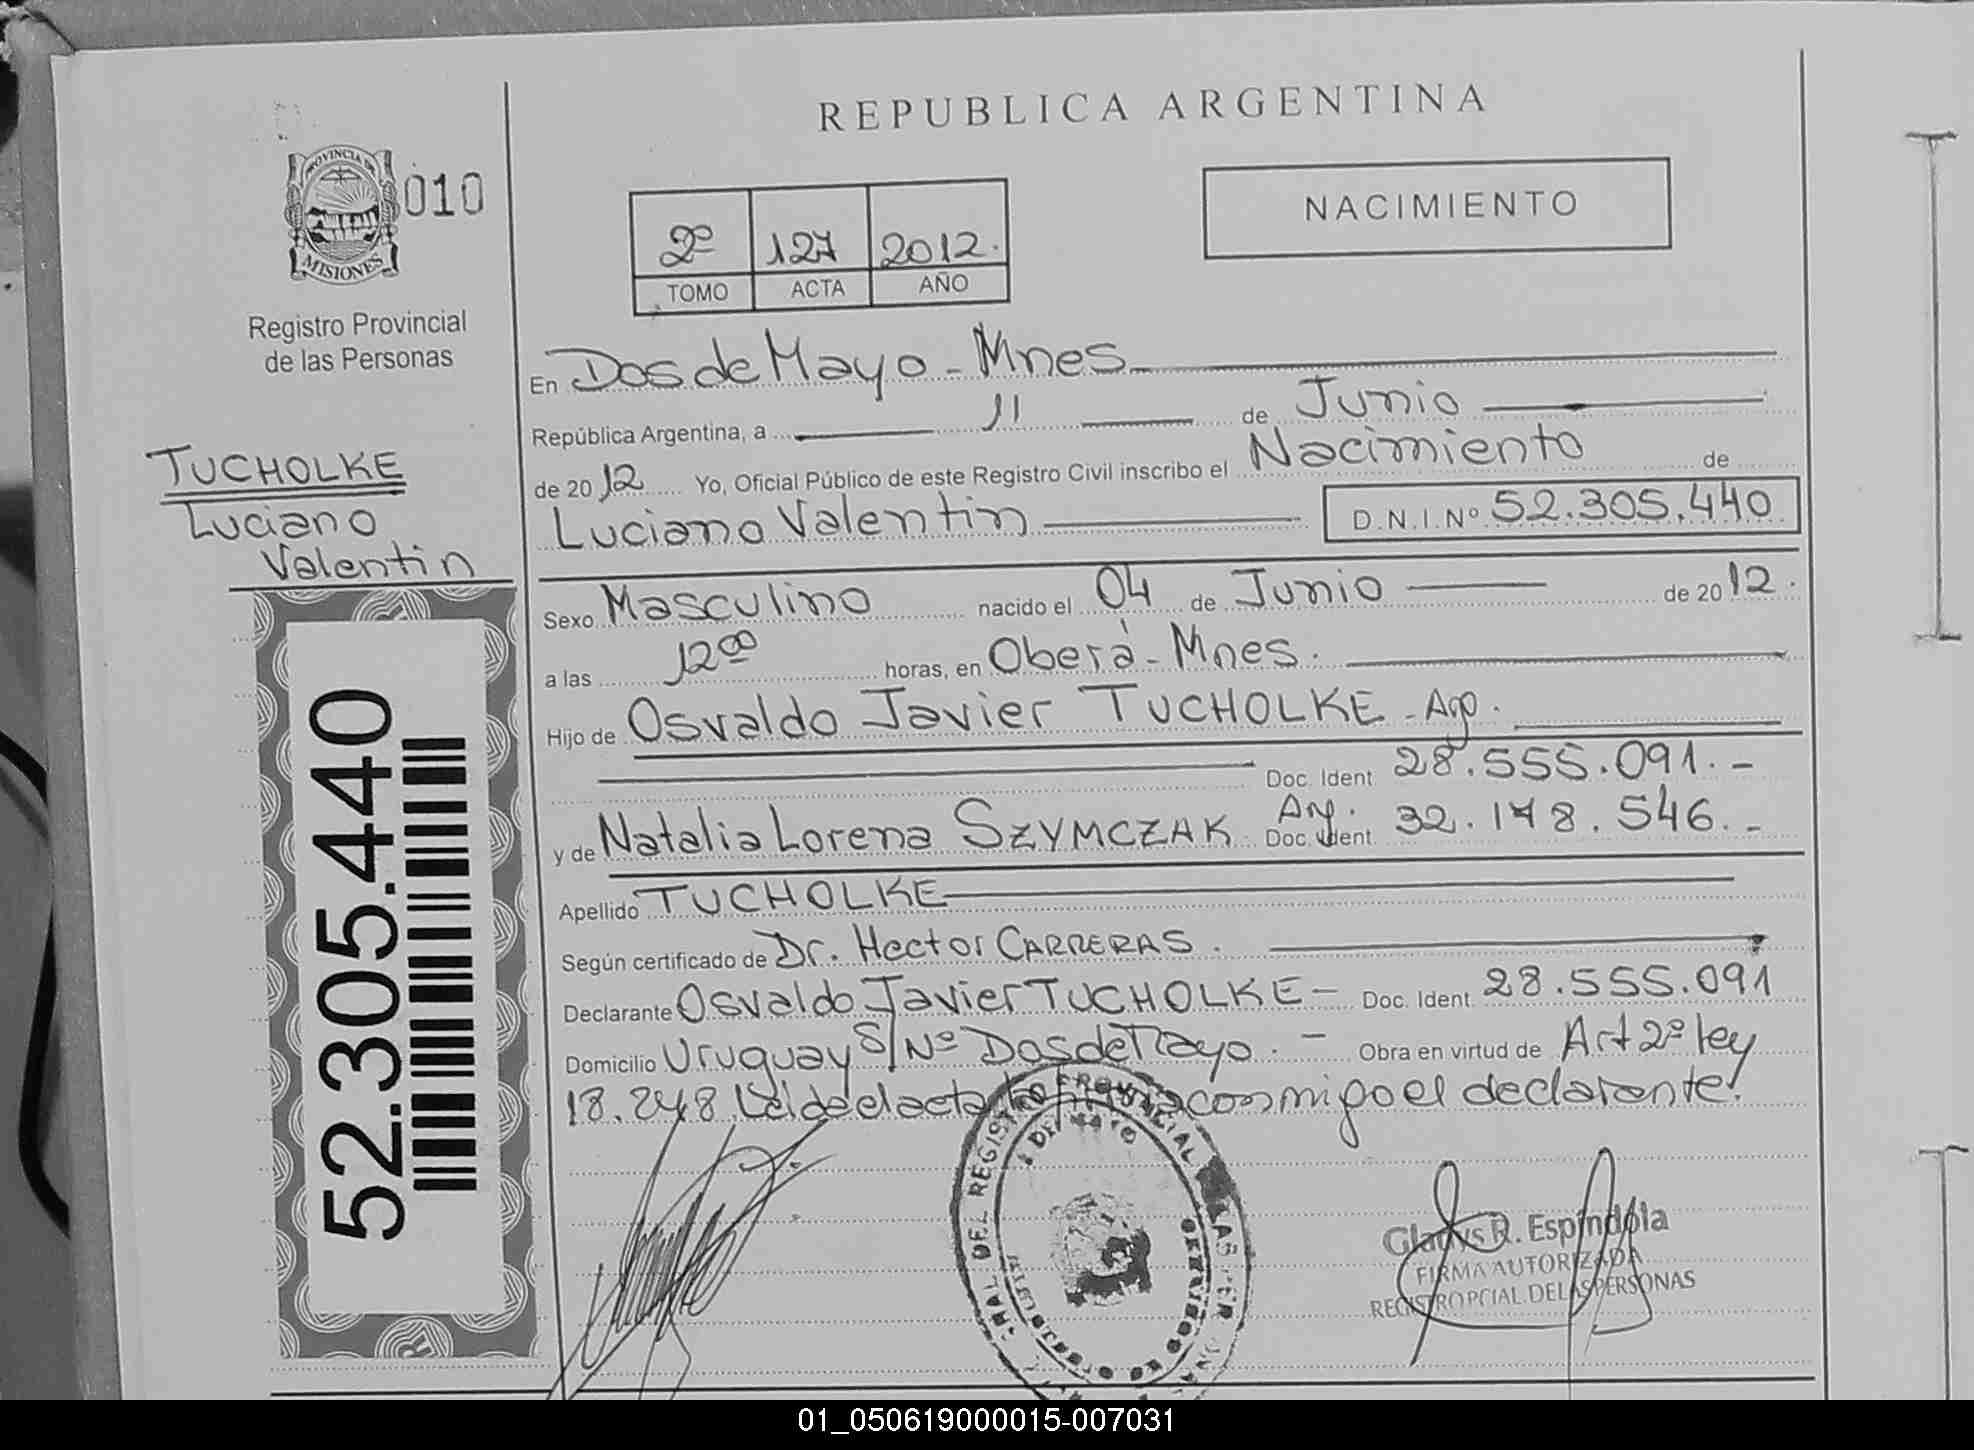 REPUBLICA ARGENTINA
PROVINCIA DE
MISIONES
010
Registro Provincial
de las Personas
2º 127 2012.
TOMO ACTA AÑO
NACIMIENTO
TUCHOLKE
Luciano
Valentin
52.305.440
En Dos de Mayo - Mnes.
República Argentina, a 11 de Junio
de 2012 Yo, Oficial Público de este Registro Civil inscribo el Nacimiento de
Luciano Valentin D.N.I.Nº 52.305.440
Sexo Masculino nacido el 04 de Junio de 2012.
a las 12 00 horas, en Oberá - Mnes.
Hijo de Osvaldo Javier TUCHOLKE - Arg.
Doc. Ident. 28.555.091.-
y de Natalia Lorena SZYMCZAK Arg. Doc. Ident. 32.178.546.-
Apellido TUCHOLKE
Según certificado de Dr. Hector CARRERAS.
Declarante Osvaldo Javier TUCHOLKE - Doc. Ident. 28.555.091
Domicilio Uruguay S/Nº Dos de Mayo. - Obra en virtud de Art 2º ley
18.248. Leida el acta la firma con migo el declarante.
DEL REGISTRO PROVINCIAL DE LAS PERSONAS
2 DE MAYO
Gladys R. Espíndola
FIRMA AUTORIZADA
REGISTRO PCIAL. DE LAS PERSONAS
01_050619000015-007031